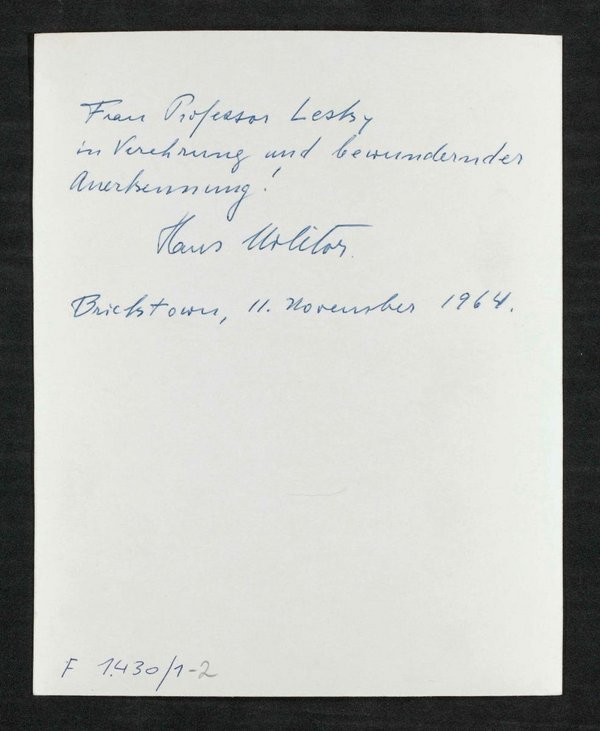 Frau Professor Lesky
in Verehrung und bewundernder
Anerkennung!
Hans Molitor.
Bricktown, 11. November 1964.
F 1.430/1-2